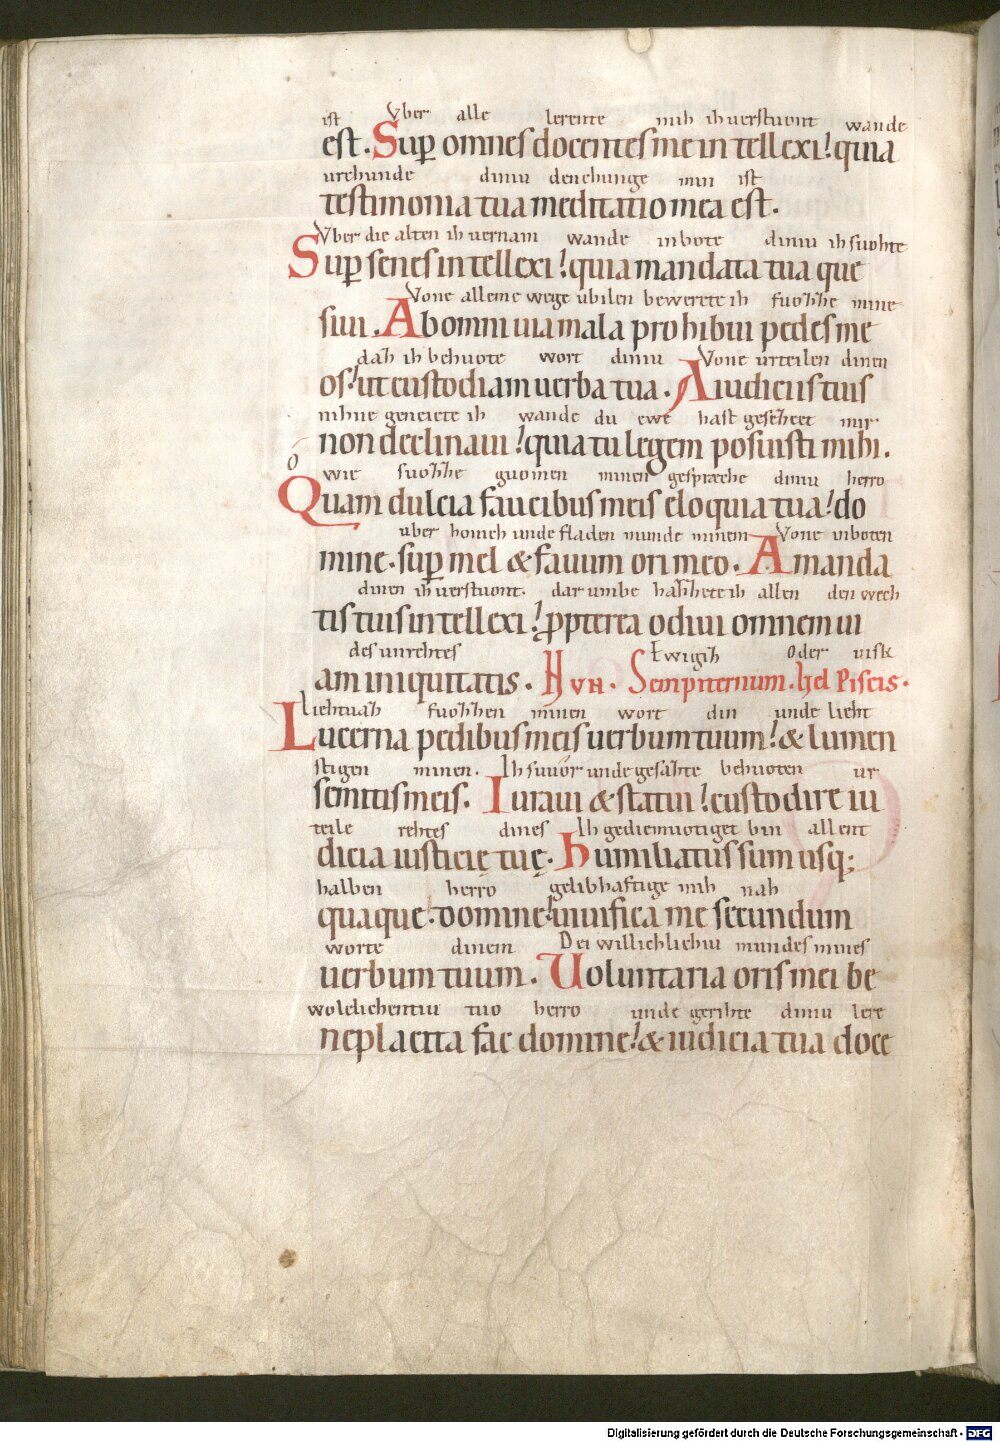 ist Vber alle lerente mih ih verstuont wande
est. Sup omnes docentes me intellexi! quia
urchunde diniu denchunge min ist
testimonia tua meditatio mea est.
Vber die alten ih uernam wande inbote diniu ih suohte
Sup senes intellexi! quia mandata tua que
Vone alleme wege ubilen bewerete ih fuohhe mine
siui. Ab omni uia mala prohibui pedes me
dah ih behuote wort diniu Vone urteilen dinen
os! ut custodiam uerba tua. A iudiciis tuis
nihne geneicte ih wande du ewe hast gesezzet mir
non declinaui! quia tu legem posuisti mihi.
O wie suohhe guomen minen gespræche diniu herro
Quam dulcia faucibus meis eloquia tua! do
uber honich unde fladen munde minem Vone inboten
mine. sup mel & fauum ori meo. A manda
dinen ih verstuont. dar umbe hahhete ih allen den wech
tis tuis intellexi! ppterea odiui omnem ui
des unrehtes Ewigih Oder visk
am iniquitatis. NVN. Sempiternum. vel Piscis.
Liehtuah fuohhen minen wort din unde lieht
Lucerna pedibus meis uerbum tuum! & lumen
stigen minen. Ih suuor unde gesahte behuoten ur
semitis meis. Iuraui & statui! custodire iu
teile rehtes dines Ih gediemuotiget bin allent
dicia iusticię tuę. humiliatus sum usq;
halben herro gelibhaftige mih nah
quaque. domine! uiuifica me secundum
worte dinem Dei willichlichiu mundes mines
uerbum tuum. Uoluntaria oris mei be
wolelichentiu tuo herro unde gerihte diniu lere
neplacita fac domine! & iudicia tua doce
Digitalisierung gefördert durch die Deutsche Forschungsgemeinschaft - DFG